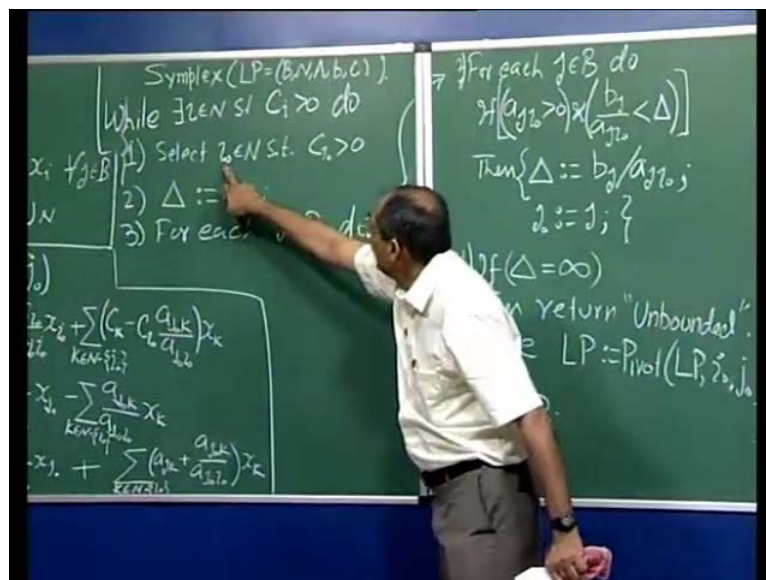 Symplex (LP=(B,N,A,b,C)).
While ∃i∈N St Cᵢ>0 do
1) Select i₀∈N S.t. Cᵢ₀>0
2) Δ :=
3) For each
xᵢ ∀j∈B
N
j₀)
xⱼ₀ + Σ_{k∈N-{i₀}} (Cₖ - Cᵢ₀ a_{j₀k}/a_{j₀i₀}) xₖ
xⱼ₀ - Σ_{k∈N-{i₀}} a_{j₀k}/a_{j₀i₀} xₖ
xⱼ₀ + Σ_{k∈N-{i₀}} (a_{jk} + a_{j₀k}/a_{j₀i₀}) xₖ
For each j∈B do
If [(a_{ji₀}>0) * (bⱼ/a_{ji₀} < Δ)]
Then { Δ := bⱼ/a_{ji₀};
j₀ := j; }
If (Δ=∞)
return "Unbounded".
LP := Pivot(LP, i₀, j₀